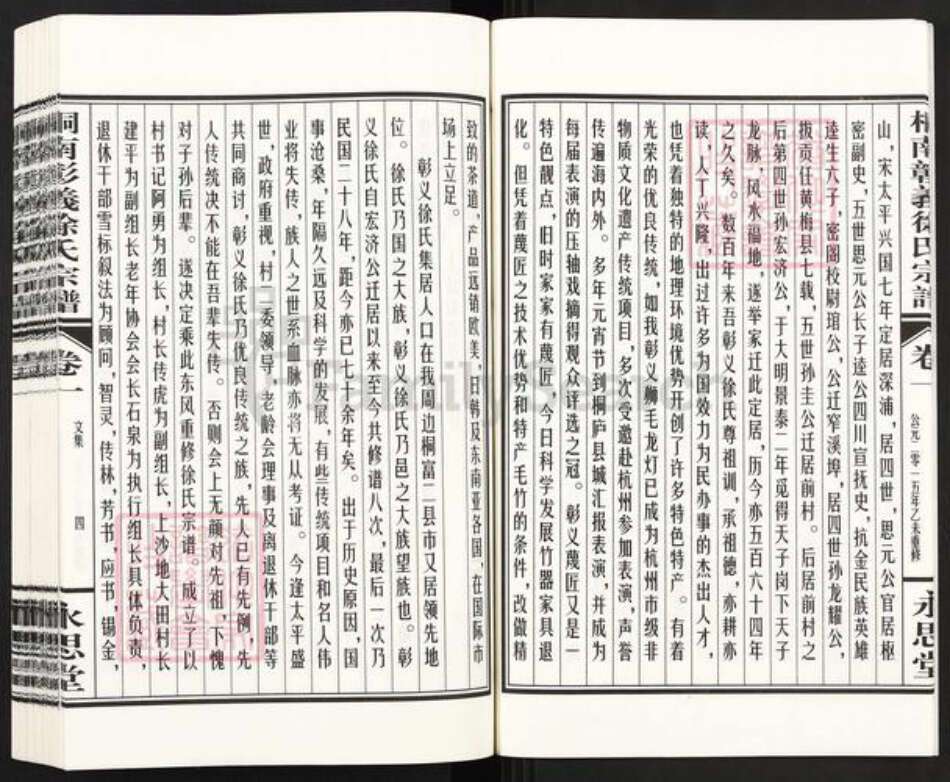 桐南彰義徐氏宗譜
卷一
公元二零一五年乙未重修
永思堂
山，宋太平兴国七年定居深浦，居四世，思元公官居枢
密副史，五世思元公长子逵公四川宣抚史，抗金民族英雄
逵生六子，密阁校尉琯公，公迁窄溪埠，居四世孙龙耀公，
拔贡任黄梅县七载，五世孙圭公迁居前村。后居前村之
后第四世孙宏济公，于大明景泰二年觅得天子岗下天子
龙脉，风水福地，遂举家迁此定居，历今亦五百六十四年
之久矣。数百年来吾彰义徐氏尊祖训，承祖德，亦耕亦
读，人丁兴隆，出过许多为国效力为民办事的杰出人才，
也凭着独特的地理环境优势开创了许多特色特产。有着
光荣的优良传统，如我彰义狮毛龙灯已成为杭州市级非
物质文化遗产传统项目，多次受邀赴杭州参加表演，声誉
传遍海内外。多年元宵节到桐庐县城汇报表演，并成为
每届表演的压轴戏摘得观众评选之冠。彰义蔑匠又是一
特色靓点，旧时家家有蔑匠，今日科学发展竹器家具退
化。但凭着蔑匠之技术优势和特产毛竹的条件，改做精
致的茶道，产品远销欧美，日韩及东南亚各国，在国际市
场上立足。
彰义徐氏集居人口在我周边桐富二县市又居领先地
位。徐氏乃国之大族，彰义徐氏乃邑之大族望族也。彰
义徐氏自宏济公迁居以来至今共修谱八次，最后一次乃
民国二十八年，距今亦已七十余年矣。出于历史原因，国
事沧桑，年隔久远及科学的发展，有些传统项目和名人伟
业将失传，族人之世系血脉亦将无从考证。今逢太平盛
世，政府重视，村二委领导，老龄会理事及离退休干部等
共同商讨，彰义徐氏乃优良传统之族，先人已有先例，先
人传统决不能在吾辈失传。否则会上无颜对先祖，下愧
对子孙后辈。遂决定乘此东风重修徐氏宗谱。成立了以
村书记阿勇为组长，村长传虎为副组长，上沙地大田村长
建平为副组长老年协会会长石泉为执行组长具体负责，
退休干部雪标叙法为顾问，智灵，传林，芳书，应书，锡金，
桐南彰義徐氏宗譜
卷一
文集
四
永思堂